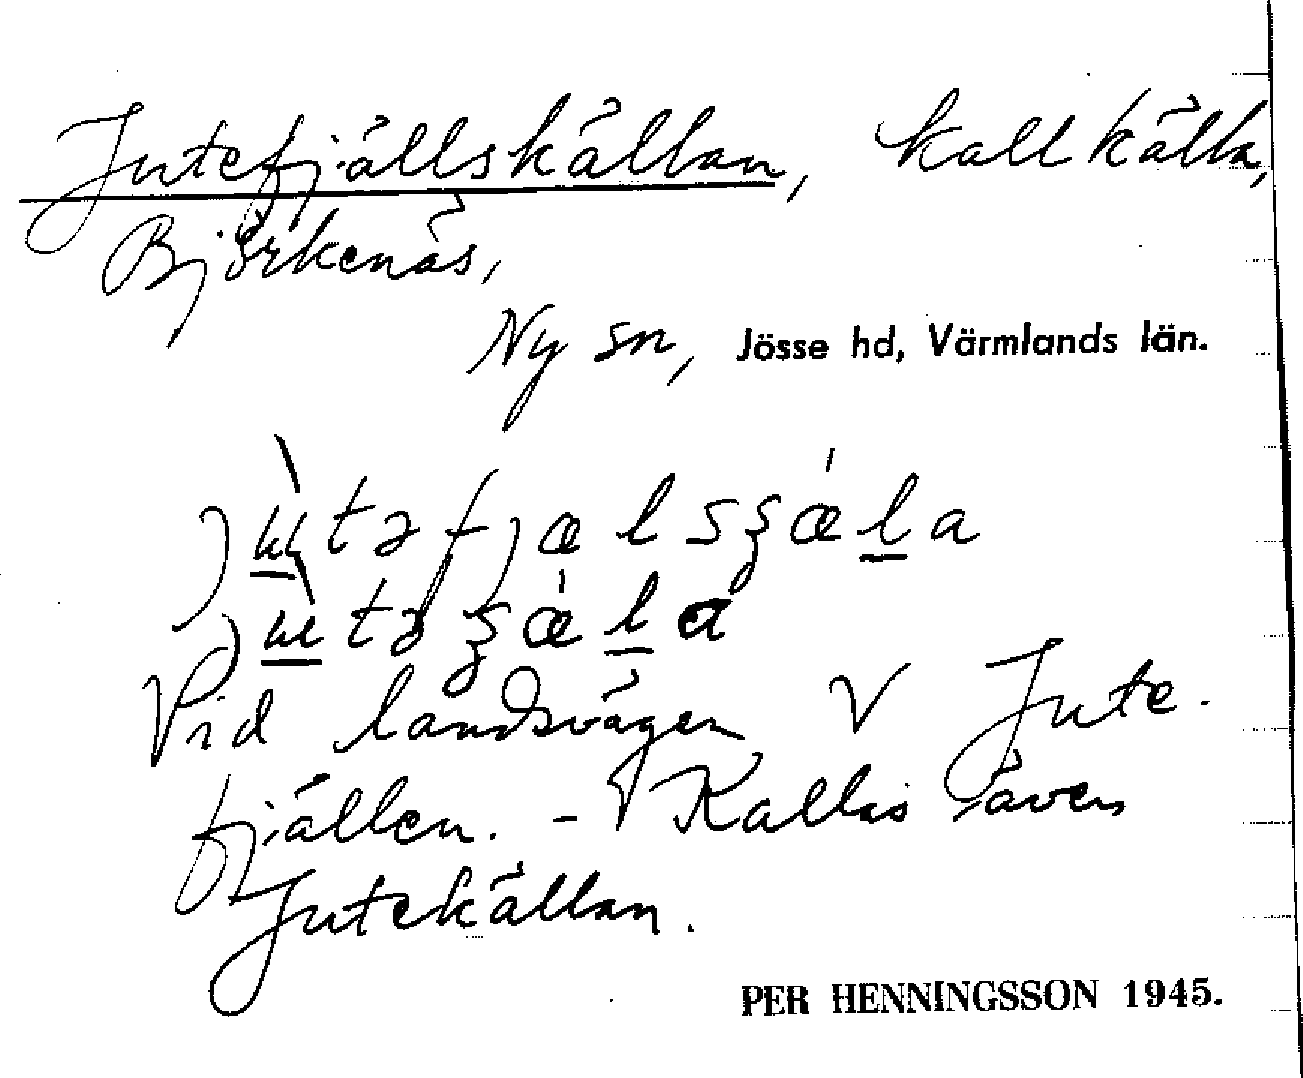 Jutefjällskällan, kallkälla,
Björkenäs,
Ny sn, Jösse hd, Värmlands län.
Vid landsvägen V Jute-
fjällen. - Kallas även
Jutekällan.
PER HENNINGSSON 1945.